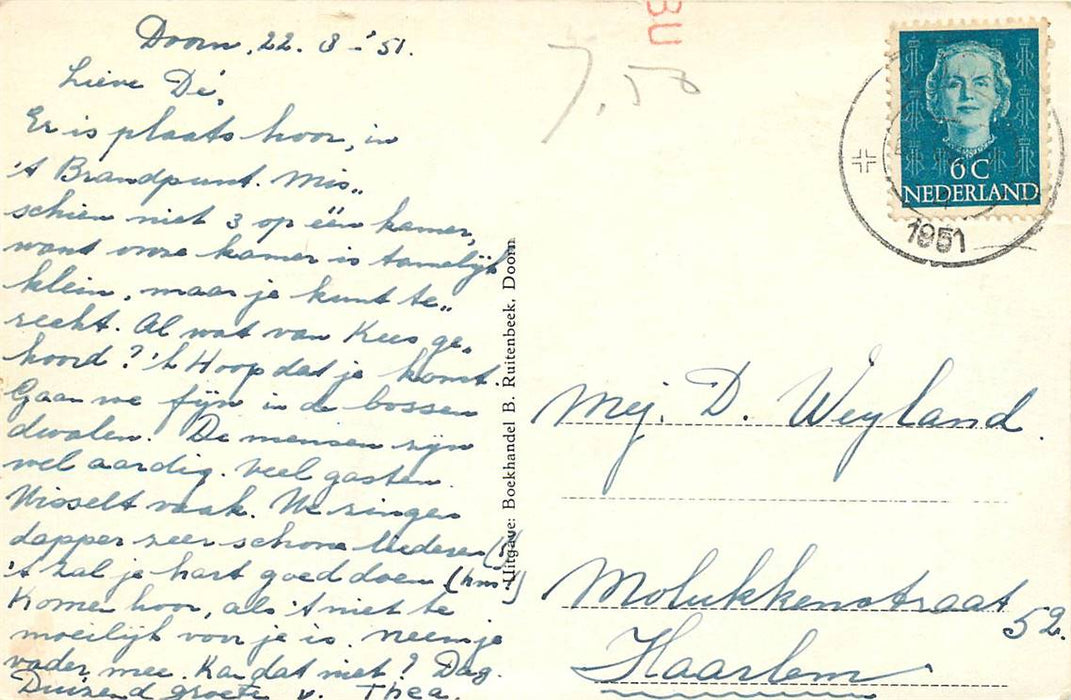 Doorn, 22. 8 - '51.
Lieve Dé,
Er is plaats hoor, in
't Brandpunt. Mis„
schien niet 3 op één kamer,
want onze kamer is tamelijk
klein, maar je kunt te„
recht. Al wat van Kees ge„
hoord? 'k Hoop dat je komt
Gaan we fijn in de bossen
dwalen. De mensen zijn
wel aardig. Veel gasten.
Wisselt vaak. We zingen
dapper zeer schone liederen
't zal je hart goed doen (hm!)
Komen hoor, als 't niet te
moeilijk voor je is. neem je
vader mee. Kan dat niet? Dag.
Duizend groeten v. Thea.
Uitgave: Boekhandel B. Ruitenbeek, Doorn
7,50
6C
NEDERLAND
1951
Mej. D. Weyland.
Molukkenstraat 52.
Haarlem